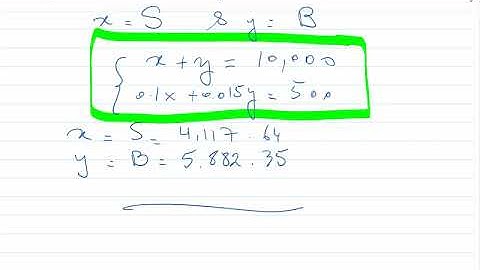 x = S & y = B
x + y = 10,000
0.1x + 0.015y = 500
x = S = 4,117.64
y = B = 5.882.35